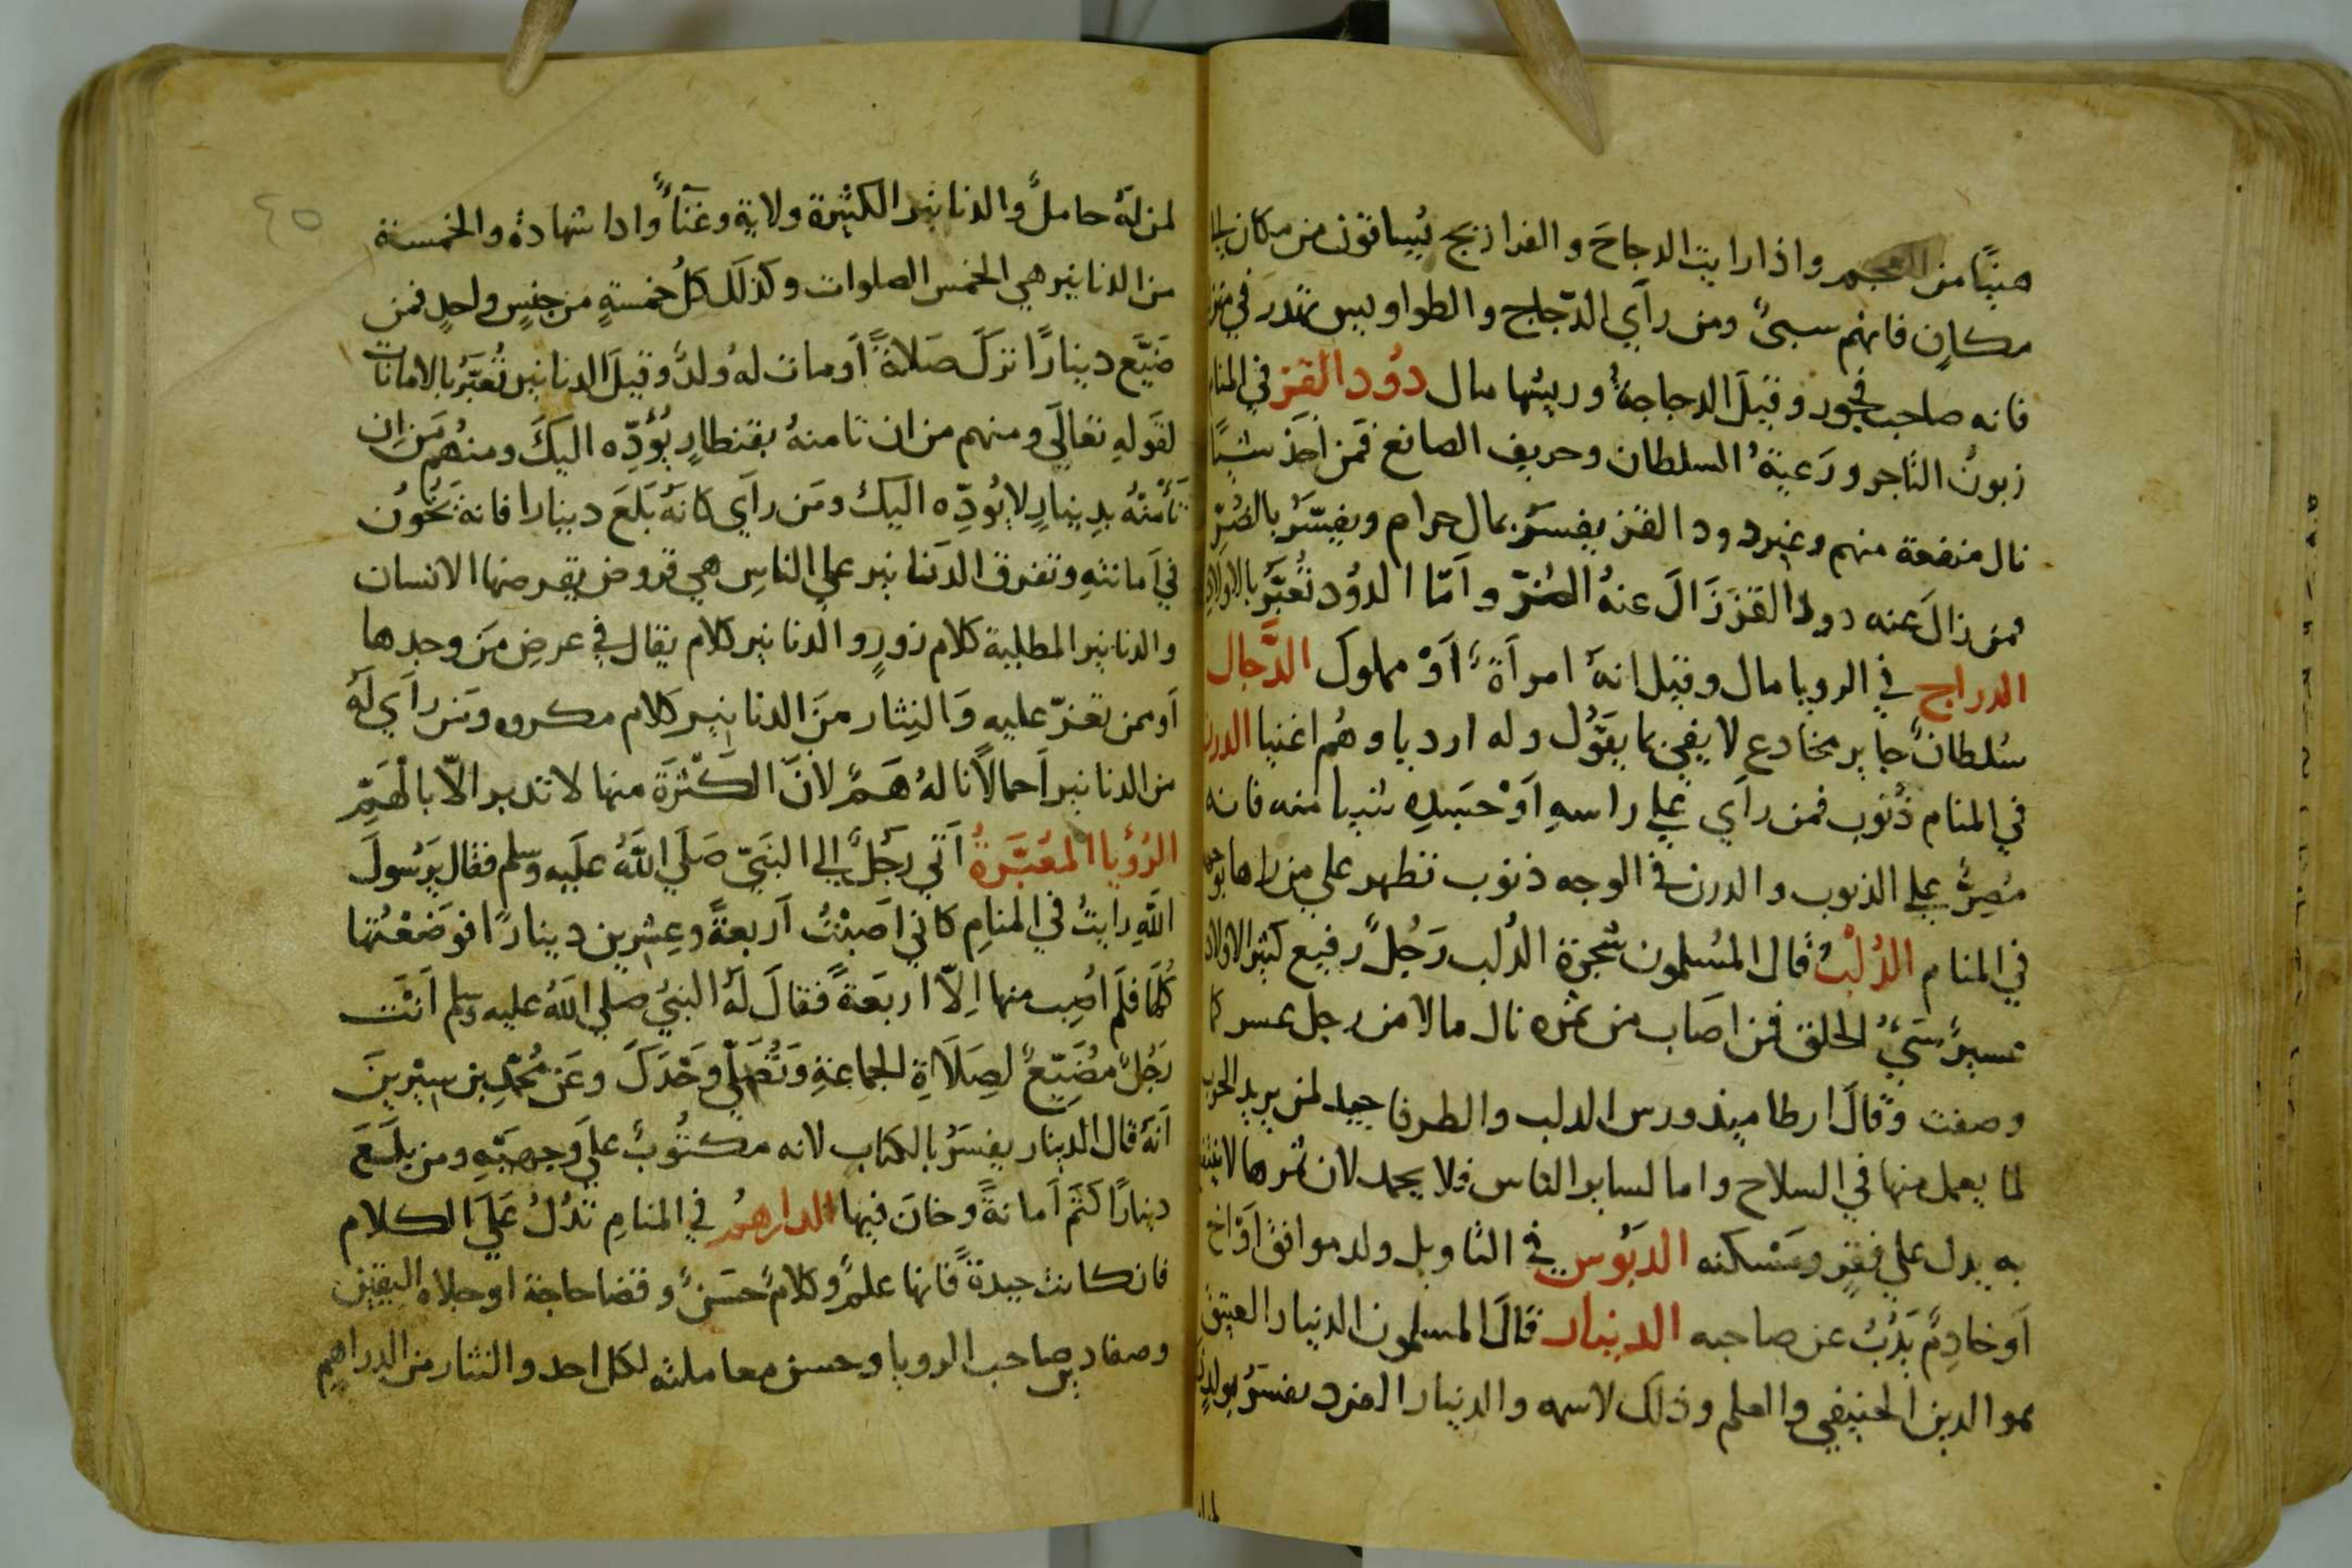 هنيًا من العجم واذا رايت الدجاج والفراريج يُساقون من مكان الي
مكانٍ فانهم سبيٌ ومن رآي الدّجاج والطواويس تهدر في منز
فانه صاحب فجور وقيلَ الدجاجةُ وريشها مال دوُد القز في المنام
زبونُ التاجر ورَعيَّةُ السلطان وحريف الصانع فمن اخذ شيًا
نال منفعة منهم وغير دود القز يفسَرُ بمال حرام ويفسّرُ بالضُرّ
فمن زالَ عنه دود القز زَالَ عنهُ الضُرّ وآمّا الدوُد تُعبَّر بالاولاد
الدراج في الرويا مال وقيل انهُ امرآةٌ آوْ مملوك الدَّجال
سُلطانٌ جاير مخادع لا يفي بما يقوُل وله اردياء وهُم اغنيا الدرن
في المنام ذُنوب فمن رآي علي راسهِ آوْ جسَدِهِ شيا منه فانه
مُصِرٌ علي الذنوب والدرن في الوجه ذنوب تظهر علي من راها
في المنام الدُلْبُ قال المُسلمون شجرة الدُلب رَجُلٌ رفيع كثير الاولاد
عسيرٌ سَيُّ الخلق فمن اصَاب من ثمره نال مالا من رجل عسر كما
وصفت وقالَ ارطاميدورس الدلب والطرفا جيد لمن يريد الحرب
لما يعمل منها في السلاح واما لساير الناس فلا يحمد لان ثمرها لا يغتذي
به يدل علي فقرٍ ومَسْكنه الدبوُس في التاويل ولد موافق آوْ اخ
آو خادِمٌ يَذُبُ عن صاحبه الدينار قالَ المسلمون الدينار العتيق
هوا الدين الحنيفي والعلم وذلك لاسمه والدينار المفرد يفسرُ بولدٍ
لمن لهُ حاملٌ والدنانير الكثيرة ولاية وغنَآً وادا شهادة والخمسة
من الدنانير هي الخمس الصلوات وكذلَك كلُ خمسةٍ من جنسٍ واحدٍ فمن
ضَيَّع دينارًا تركَ صَلاةً آو مات لهُ ولدٌ وقيلَ الدنانير تُعبَّرُ بالامانات
لقولهِ تعالَي ومنهم من ان تامنهُ بقنطارٍ يُؤدِّه اليكَ ومنهُم مَن اِن
تَأمَنْهُ بدِينارٍ لا يُودِّه اليك ومَن رآي كانهُ بَلعَ دينارا فانه يَخُون
في آمانتهِ وتفرق الدَنانير علي الناسِ هي قروض يقرضها الانسان
والدنانير المطلية كلام زورٍ والدنانير كلام يقال في عرضِ مَن وجدها
آو ممن تعزّ عليه وَالنِثار منَ الدنانير كلام مكروه ومَن رآي لَهُ
من الدنانير آحمالاً نالهُ هَمٌ لانَ الكَثْرَة منها لا تدبر الاّ بالهَمِّ
الرُؤيا المعَبَّرةُ آتي رجَلٌ الي النبَيّ صَلَي اللَّهُ علَيه وسلم فقال يَرَسُولَ
اللَّهِ رايتُ في المنامِ كاني اَصَبْتُ آربعةً وعِشرين دينارًا فوَضَعْتُها
كُلَّها فلَم اُصِب منها اِلاّ اربَعةً فقالَ لَهُ النبيُ صلي اللَّهُ عليه وسلم آنْتَ
رَجُلٌ مُضَيِّعٌ لصِلَاةِ الجماعةِ وَتُصَلّي وَحْدَكَ وعَن مُحمّدِ بن سيْرينَ
آنَهُ قال الدينار يفسَرُ بالكتاب لانه مكتُوبٌ علَي وجهيْهِ ومن بلَعَ
دينارًا كَتَم آمانةً وخانَ فيها الدارهمُ في المنامِ تدُلُ علَي الكلام
فان كانت جيدةً فانها علمٌ وكلامٌ حسَنٌ وقضا حاجة او جلاه اليقين
وصفا دين صاحب الرويا وحسن معاملته لكل احد والنثار من الدراهم